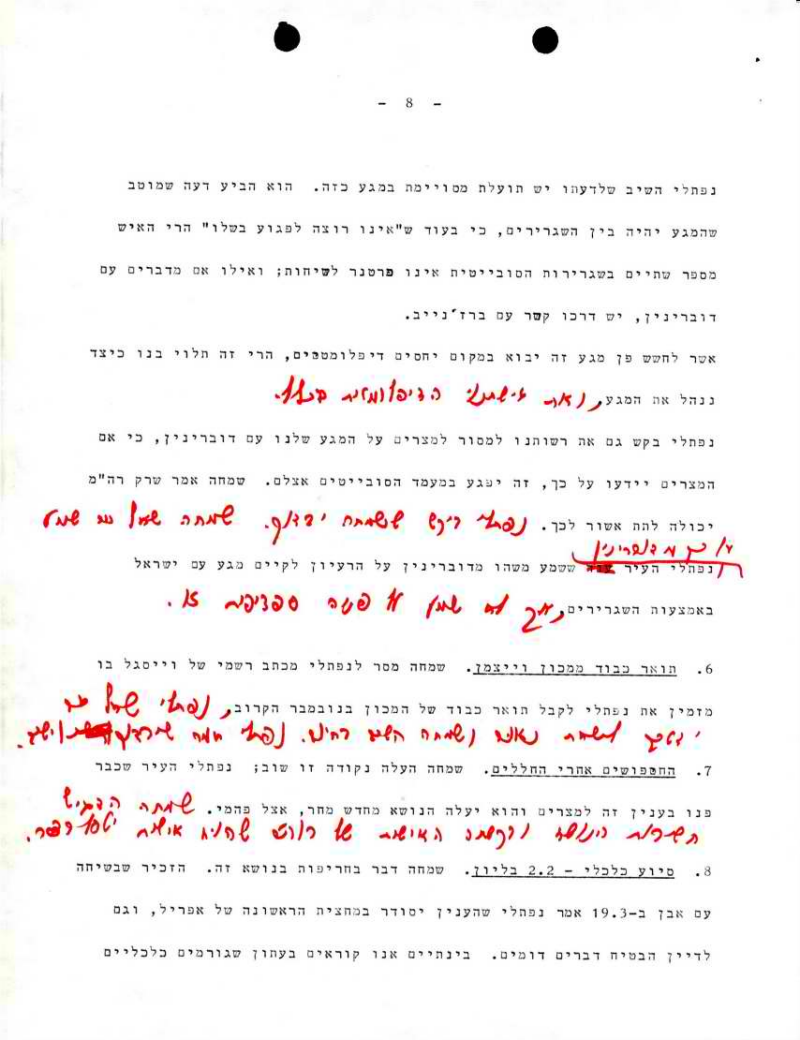 - 8 -
נפתלי השיב שלדעתו יש תועלת מסויימת במגע כזה. הוא הביע דעה שמוטב
שהמגע יהיה בין השגרירים, כי בעוד ש"אינו רוצה לפגוע בשלו" הרי האיש
מספר שתיים בשגרירות הסובייטית אינו פרטנר לשיחות; ואילו אם מדברים עם
דוברינין, יש דרכו קשר עם ברז'נייב.
אשר לחשש פן מגע זה יבוא במקום יחסים דיפלומטיים, הרי זה תלוי בנו כיצד
ננהל את המגע,
נפתלי בקש גם את רשותנו למסור למצרים על המגע שלנו עם דוברינין, כי אם
המצרים יידעו על כך, זה יפגע במעמד הסובייטים אצלם. שמחה אמר שרק רה"מ
יכולה לתת אשור לכך. נפתלי ביקש ששמחה יבדוק. שמחה שאל
על כך מדוברינין
נפתלי העיר ששמע משהו מדוברינין על הרעיון לקיים מגע עם ישראל
באמצעות השגרירים, אך לא שמע על פניה ספציפית זו.
6. תואר כבוד ממכון וייצמן. שמחה מסר לנפתלי מכתב רשמי של וייסגל בו
מזמין את נפתלי לקבל תואר כבוד של המכון בנובמבר הקרוב, נפתלי שאל
ושמחה השיב בחיוב. נפתלי
7. החפושים אחרי החללים. שמחה העלה נקודה זו שוב; נפתלי העיר שכבר
פנו בענין זה למצרים והוא יעלה הנושא מחדש מחר, אצל פהמי. שמחה הדגיש
חשיבות הנושא האישית של
8. סיוע כלכלי - 2.2 בליון. שמחה דבר בחריפות בנושא זה. הזכיר שבשיחה
עם אבן ב-19.3 אמר נפתלי שהענין יסודר במחצית הראשונה של אפריל, וגם
לדיין הבטיח דברים דומים. בינתיים אנו קוראים בעתון שגורמים כלכליים